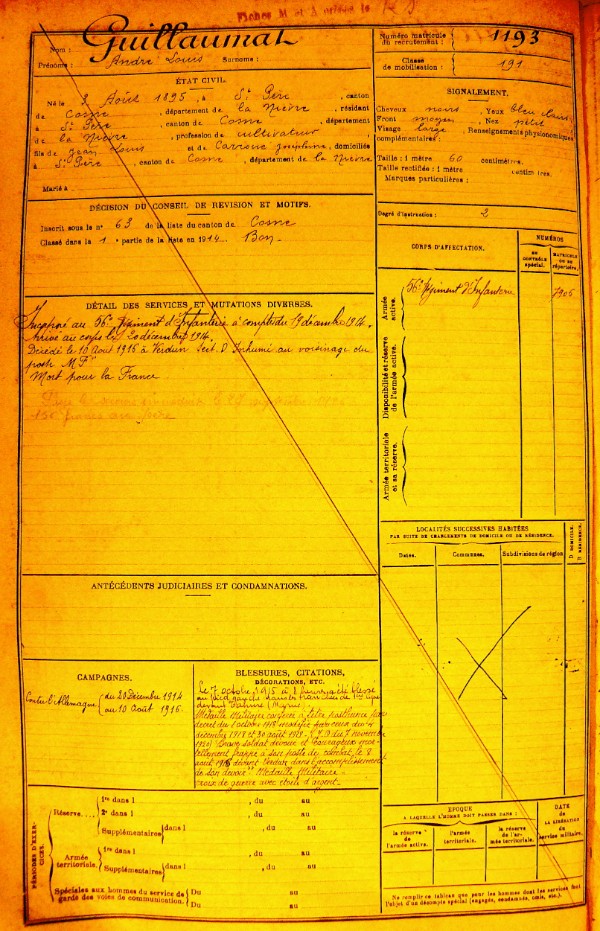 Fiches M et
Guillaumat
Nom :
Prénoms : André Louis Surnoms :
Numéro matricule du recrutement : 1193
Classe de mobilisation : 191
ÉTAT CIVIL.
Né le 2 Août 1895, à St Père, canton
de Cosne, département de la Nièvre, résidant
à St Père, canton de Cosne, département
de la Nièvre, profession de cultivateur
fils de Jean Louis et de Joséphine, domiciliés
à St Père, canton de Cosne, département de la Nièvre
Marié à
SIGNALEMENT.
Cheveux noirs, Yeux bleu clair
Front moyen, Nez petit
Visage large, Renseignements physionomiques
complémentaires :
Taille : 1 mètre 60 centimètres.
Taille rectifiée : 1 mètre centimètres.
Marques particulières :
Degré d'instruction : 2
DÉCISION DU CONSEIL DE REVISION ET MOTIFS.
Inscrit sous le n° 63 de la liste du canton de Cosne
Classé dans la 1e partie de la liste en 1914. Bon
CORPS D'AFFECTATION.
NUMÉROS
AU CONTRÔLE SPÉCIAL.
MATRICULE OU AU RÉPERTOIRE.
Armée active.
56e Régiment d'Infanterie
7906
Disponibilité et réserve de l'armée active.
Armée territoriale et sa réserve.
DÉTAIL DES SERVICES ET MUTATIONS DIVERSES.
Incorporé au 56e Régiment d'Infanterie à compter du 19 décembre 1914.
Arrivé au corps le 20 décembre 1914
Décédé le 10 Août 1916 à Verdun Inhumé au voisinage du
poste
Mort pour la France
150 francs au père
LOCALITÉS SUCCESSIVES HABITÉES
PAR SUITE DE CHANGEMENTS DE DOMICILE OU DE RÉSIDENCE.
Dates.
Communes.
Subdivisions de région
D DOMICILE.
R RÉSIDENCE.
ANTÉCÉDENTS JUDICIAIRES ET CONDAMNATIONS.
CAMPAGNES.
Contre l'Allemagne (du 20 Décembre 1914
au 10 Août 1916.
BLESSURES, CITATIONS,
DÉCORATIONS, ETC.
Le 7 octobre 1915 à heures a été blessé
au pied gauche
Médaille Militaire conférée à titre posthume par
décret du 1 octobre 1918 modifié par ceux du
décembre 1918 et 30 août 1919. (J.O du 7 novembre
1920) Brave soldat dévoué et courageux mor-
tellement frappé à son poste de combat le 8
août 1916 devant Verdun dans l'accomplissement
de son devoir. Médaille Militaire
croix de guerre avec étoile d'argent.
PÉRIODES D'EXERCICES.
Réserve....
1re dans l , du au
2e dans l , du au
Supplémentaires dans l , du au
Armée territoriale.
1re dans l , du au
Supplémentaires dans l , du au
Spéciales aux hommes du service de gardes des voies de communication.
Du au
Du au
ÉPOQUE
A LAQUELLE L'HOMME DOIT PASSER DANS :
la réserve de l'armée active.
l'armée territoriale.
la réserve de l'armée territoriale.
DATE
DE LA LIBÉRATION
du service militaire.
Ne remplir ce tableau que pour les hommes dont les services font
l'objet d'un décompte spécial (engagés, condamnés, omis, etc.).